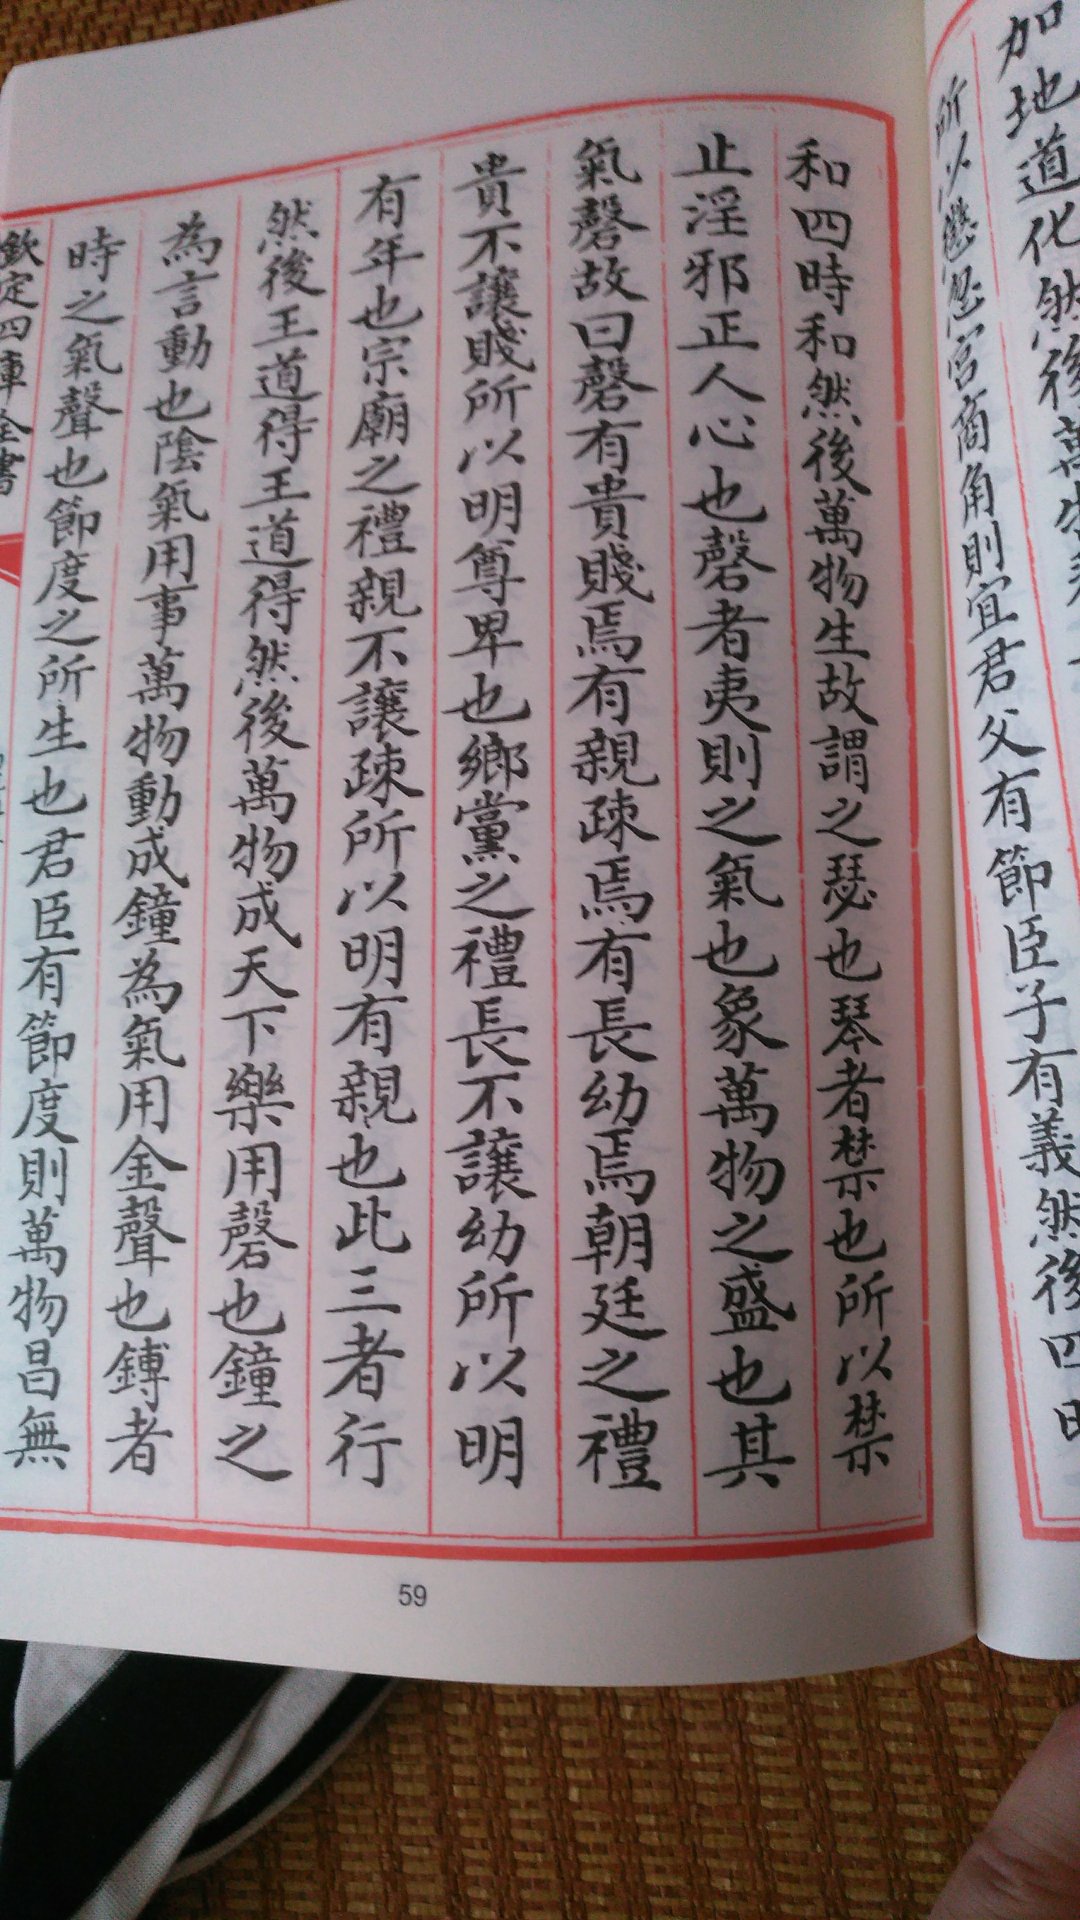 加地道化然後萬
所以懲忿宮商角則宜君父有節臣子有義然後四時
和四時和然後萬物生故謂之瑟也琴者禁也所以禁
止淫邪正人心也磬者夷則之氣也象萬物之盛也其
氣磬故曰磬有貴賤焉有親疎焉有長幼焉朝廷之禮
貴不讓賤所以明尊卑也鄉黨之禮長不讓幼所以明
有年也宗廟之禮親不讓疎所以明有親也此三者行
然後王道得王道得然後萬物成天下樂用磬也鐘之
為言動也陰氣用事萬物動成鐘為氣用金聲也鎛者
時之氣聲也節度之所生也君臣有節度則萬物昌無
欽定四庫全書
59